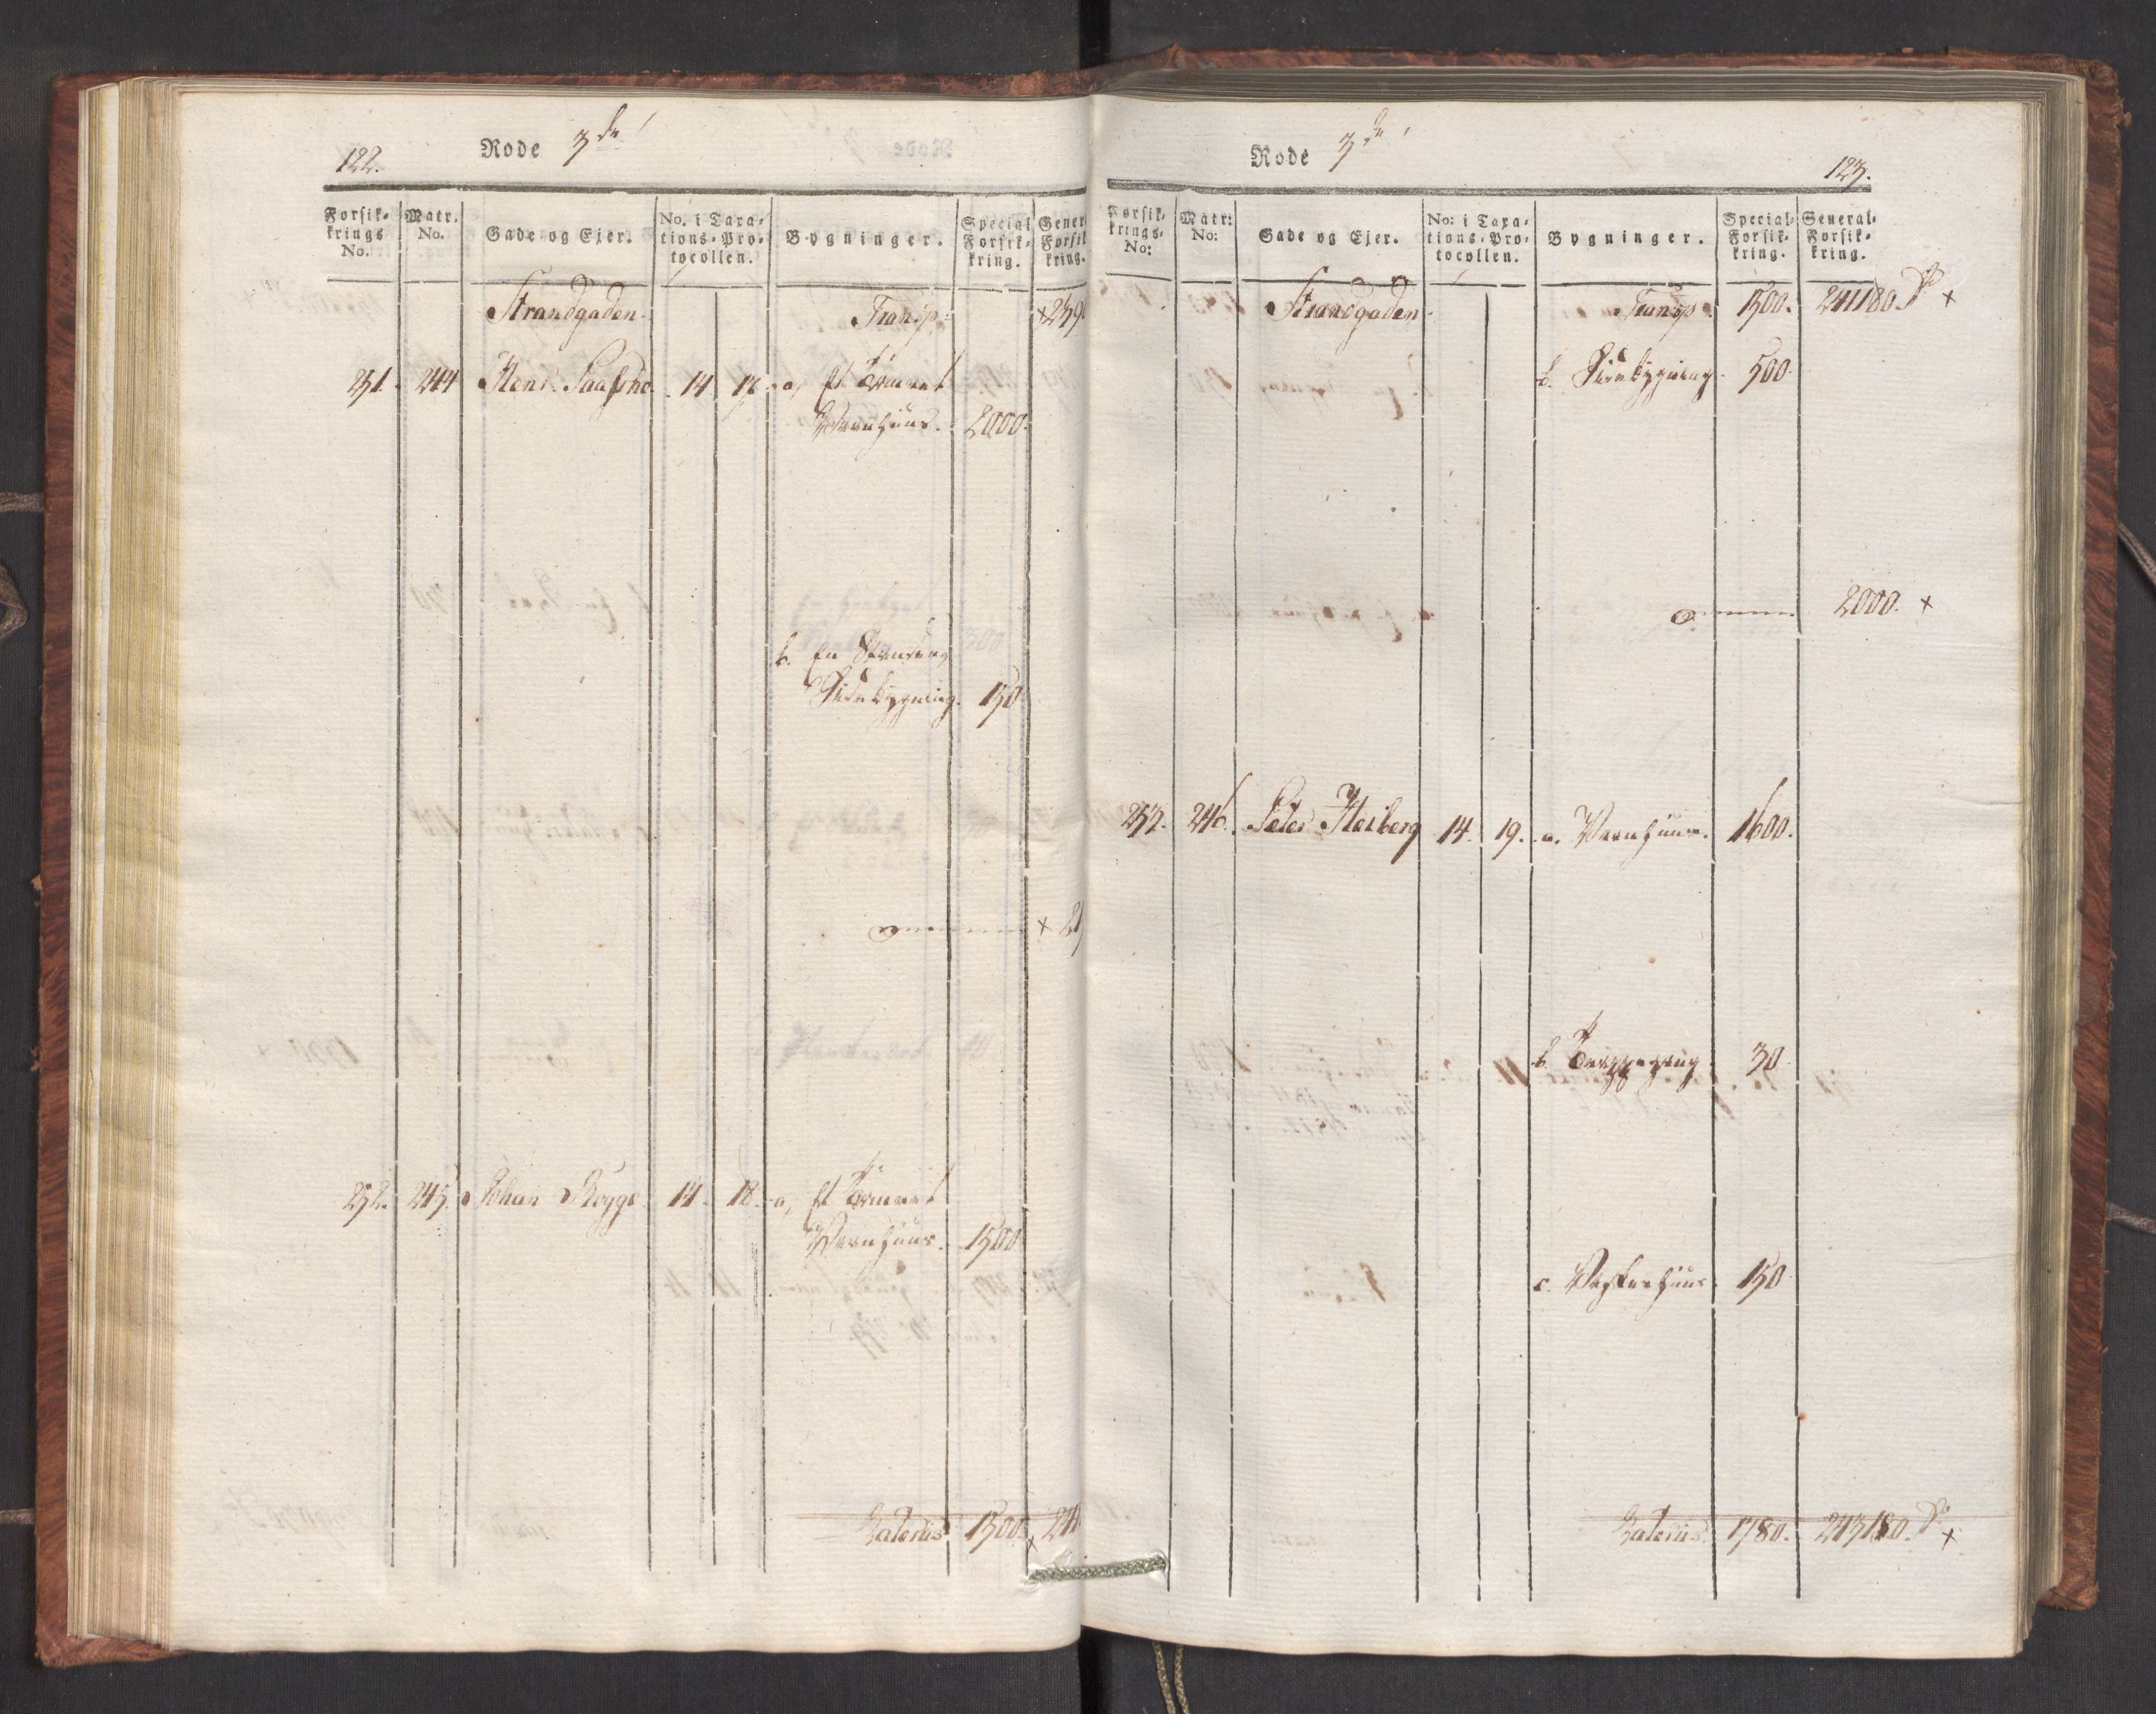 122.
Rode 3de
Forsik-
krings
No.
Matr.
No.
Gade og Ejer.
No. i Taxa-
tions-Pro-
tocollen.
Bygninger.
Special
Forsik-
kring.
Gener
Forsik
kring.
Strandgaden. Transp: x239
251. 244 14 17. a, Et Tømmert
Vaanhuus. 2000.
b.
Sidebygning. 150
x 21
252. 245. Johan Brygge 14. 18. a, Et Tømmert
Vaanhuus. 1500
Lateris 1500. x 241
Rode 3de
123.
Forsik-
krings-
No:
Matr:
No:
Gade og Ejer.
No: i Taxa-
tions-Pro-
tocollen.
Bygninger.
Special-
Forsik-
kring.
General-
Forsik-
kring.
Strandgaden. Transp. 1500. 241180. x
b. Sidebygning. 500.
2000. x
253. 246. Peter Heiberg 14. 19. a. Vaanhuus. 1600.
b. 30
c. Vaskerhuus. 150
Lateris. 1780. 243180. x